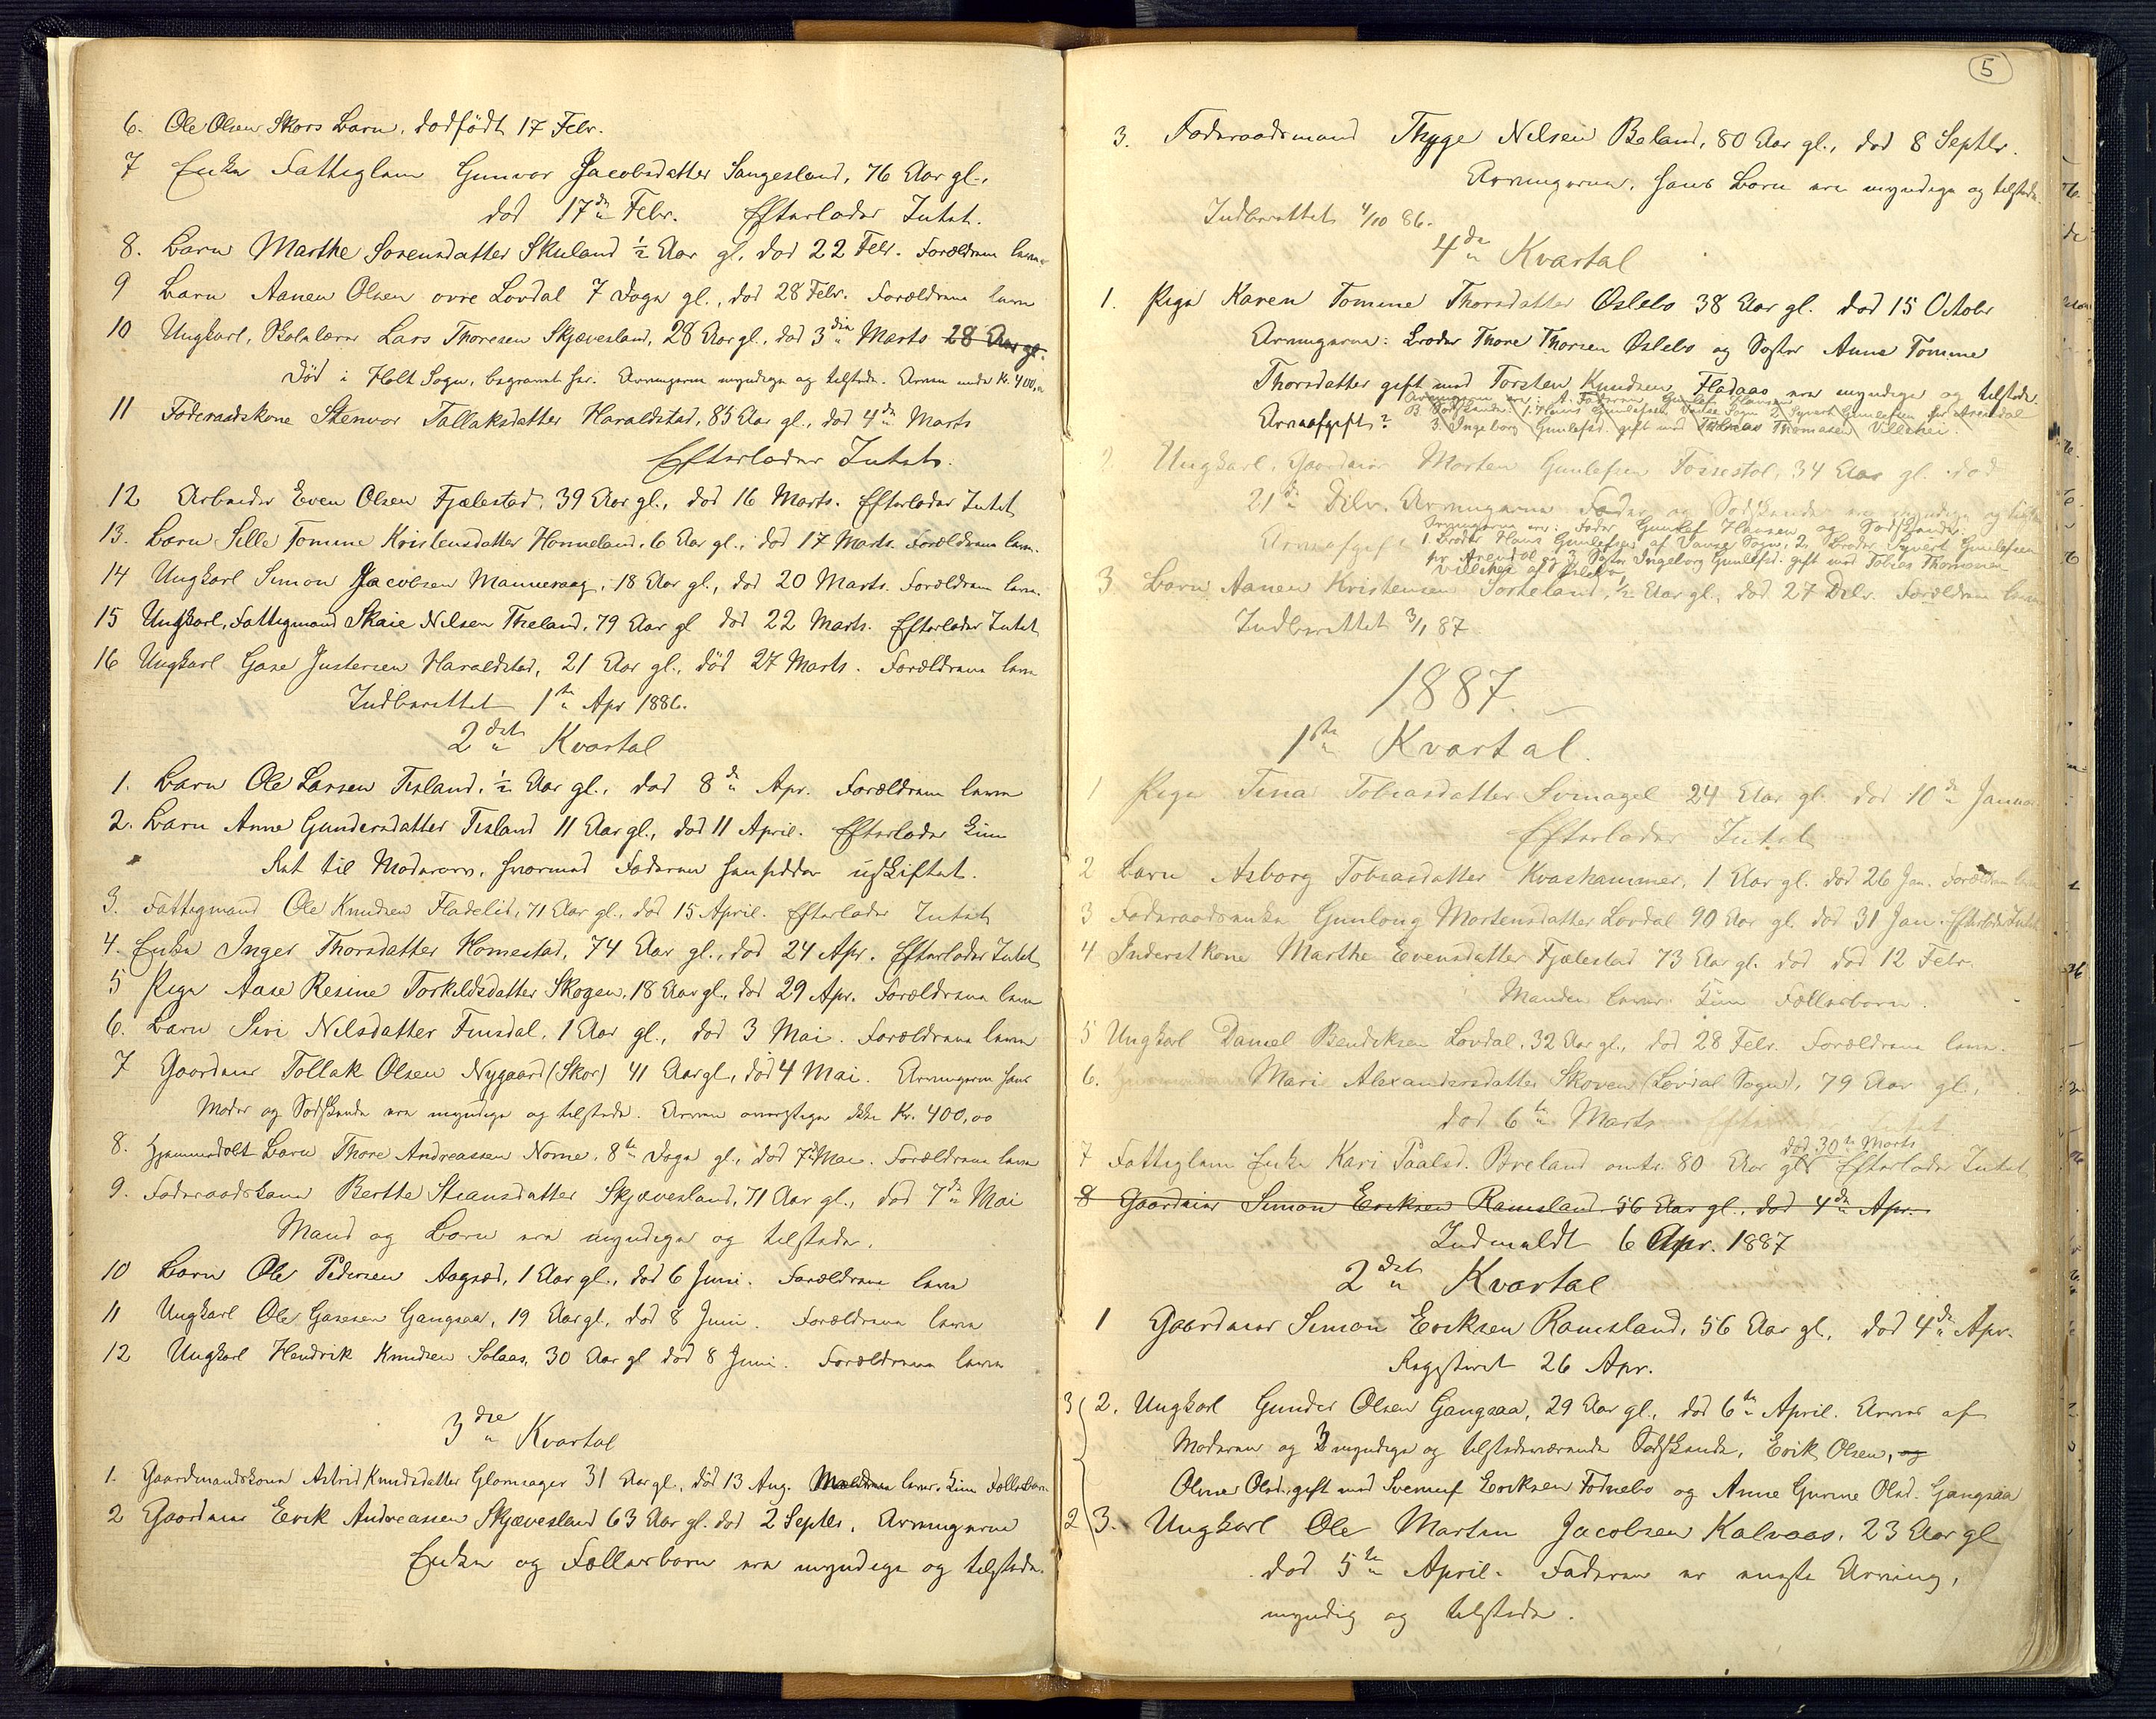 6. Ole Olsen Skors Barn, dødfødt 17 Febr.
7 Enke Fattiglem Gunvor Jacobsdatter Sangesland, 76 Aar gl.,
død 17de Febr. Efterlader Intet.
8. Barn Marthe Sorensdatter Skuland ½ Aar gl. død 22 Febr. Forældrene leve
9 Barn Aanen Olsen øvre Lovdal 7 Dage gl., død 28 Febr. Forældrene leve
10 Ungkarl, Skolelærer Lars Thoresen Skjævesland, 28 Aar gl., død 3die Marts 28 Aar gl.
Død i Holt Sogn, begravet her. Arvingerne myndige og tilstede. Arven under Kr. 400,00
11 Føderaadskone Stenvor Tallaksdatter Haraldstad, 85 Aar gl., død 4de Marts
Efterlader Intet.
12 Arbeider Even Olsen Fjælestad, 39 Aar gl., død 16 Marts. Efterlader Intet
13. Barn Sille Tomine Kristensdatter Honneland, 6 Aar gl., død 17 Marts. Forældrene leve.
14 Ungkarl Simon Jacobsen Mannevaag, 18 Aar gl., død 20 Marts. Forældrene leve.
15 Ungkarl, Fattigmand Skaie Nilsen Træland, 79 Aar gl død 22 Marts. Efterlader Intet
16 Ungkarl Gase Justersen Haraldstad, 21 Aar gl., død 27 Marts. Forældrene leve
Indberettet 1ste Apr 1886.
2det Kvartal
1. Barn Ole Larsen Tisland, ½ Aar gl., død 8de Apr. Forældrene leve
2. Barn Anne Gundersdatter Tisland 11 Aar gl., død 11 April. Efterlader kun
Ret til Modrearv, hvormed Faderen hensidder uskiftet.
3. Fattigmand Ole Knudsen Fladelid, 71 Aar gl., død 15 April. Efterlader Intet
4. Enke Inger Thorsdatter Homestad, 74 Aar gl., død 24 Apr. Efterlader Intet
5 Pige Aase Resine Torkildsdatter Skogen, 18 Aar gl., død 29 Apr. Forældrene leve
6. Barn Siri Nilsdatter Finsdal, 1 Aar gl., død 3 Mai. Forældrene leve
7 Gaardmr Tollak Olsen Nygaard (Skor) 41 Aar gl., død 4 Mai. Arvingerne hans
Moder og Sødskende ere myndige og tilstede. Arven overstiger ikke Kr. 400,00
8. Hjemmedøbt Barn Thore Andreassen Nome, 8te Dage gl., død 7de Mai. Forældrene leve
9. Føderaadskone Berthe Stiansdatter Skjævesland, 71 Aar gl., død 7de Mai
Mand og Børn ere myndige og tilstede.
10 Barn Ole Pedersen Aagsæd, 1 Aar gl., død 6 Juni. Forældrene leve
11 Ungkarl Ole Gasesen Gangsaa, 19 Aar gl., død 8 Juni. Forældrene leve
12 Ungkarl Hendrik Knudsen Solaas, 30 Aar gl død 8 Juni. Forældrene leve
3die Kvartal
1. Gaardmandskone Astrid Knudsdatter Glomsager 31 Aar gl., død 13 Aug. lever. Kun Fællesbørn
2 Gaardmr Eerik Andreassen Skjævesland 63 Aar gl. død 2 Septbr. Arvingerne
Enke og Fællesbørn ere myndige og tilstede.
5
3. Føderaadsmand Thyge Nilsen Beland, 80 Aar gl., død 8 Septbr.
Arvingerne, hans Børn ere myndige og tilstede.
Indberettet 4/10 86.
4de Kvartal
1. Pige Karen Tomine Thorsdatter Øslebø 38 Aar gl. død 15 Octobr
Arvingerne: Broder Thore Thorsen Øslebø og Søster Anne Tomine
Thorsdatter gift med Torsten Knudsen Fladaas ere myndige og tilstede.
Arvingerne ere: A. Faderen, Gunlef Hansen
B Sødskende: 1. Hans Gunlefsen Vanse Sogn 2. Syvert Gunlefsen pr Arendal
Arveafgift? 3. Ingeborg Gunlefsd. gift med Tobias Thomasen Villehei.
2 Ungkarl, Gaardmr Morten Gunlefsen Fossestøl, 34 Aar gl. død
21de Debr. Arvingerne Fader og Sødskende ere myndige og tilstede
Arvingerne ere: Fader Gunlef Hansen og Sødskende:
Arveafgift 1. Broder Hans Gunlefsen af Vanse Sogn, 2. Broder Syvert Gunlefsen
pr Arendal og 3 Søster Ingeborg Gunlefsd. gift med Tobias Thomasen
Villehei af Øslebø
3 Barn Aanen Kristensen Sorkeland, ½ Aar gl., død 27 Debr. Forældrene leve
Indberettet 3/1 87.
1887.
1ste Kvartal.
1 Pige Tina Tobiasdatter Svinagel 24 Aar gl. død 10de Januar
Efterlader Intet
2 Barn Asborg Tobiasdatter Kvashammer, 1 Aar gl. død 26 Jan. Forældrene leve
3 Føderaadsenke Gunlong Mortensdatter Lovdal 90 Aar gl. død 31 Jan. Efterlader Intet
4 Inderstkone Marthe Evensdatter Fjælestad 73 Aar gl. død død 12 Febr.
Manden lever. Kun Fællesbørn.
5 Ungkarl Daniel Bendiksen Lovdal, 32 Aar gl., død 28 Febr. Forældrene leve.
6. Mari Alexandersdatter Skoven (Løvdal Sogn), 79 Aar gl.,
død 6te Marts Efterlader Intet.
død 30te Marts
7 Fattiglem Enke Kari Paalsd. Breland omtr. 80 Aar gl. Efterlader Intet
8 Gaardmr Simon Eriksen Ramsland 56 Aar gl. død 4de Apr.
Indmeldt 6 Apr. 1887
2det Kvartal
1 Gaardmr Simon Eriksen Ramsland, 56 Aar gl., død 4de Apr.
Registeret 26 Apr.
3 2. Ungkarl Gunder Olsen Gangsaa, 29 Aar gl., død 6te April. Arves af
Moderen og 3 myndige og tilstedeværende Sødskende, Erik Olsen, og
Oline Olsd. gift med Sveinuf Eriksen Fodnebø og Anne Gurine Olsd. Gangsaa
2 3. Ungkarl Ole Martin Jacobsen Kalvaas, 23 Aar gl
død 5te April. Faderen er eneste Arving,
myndig og tilstede.